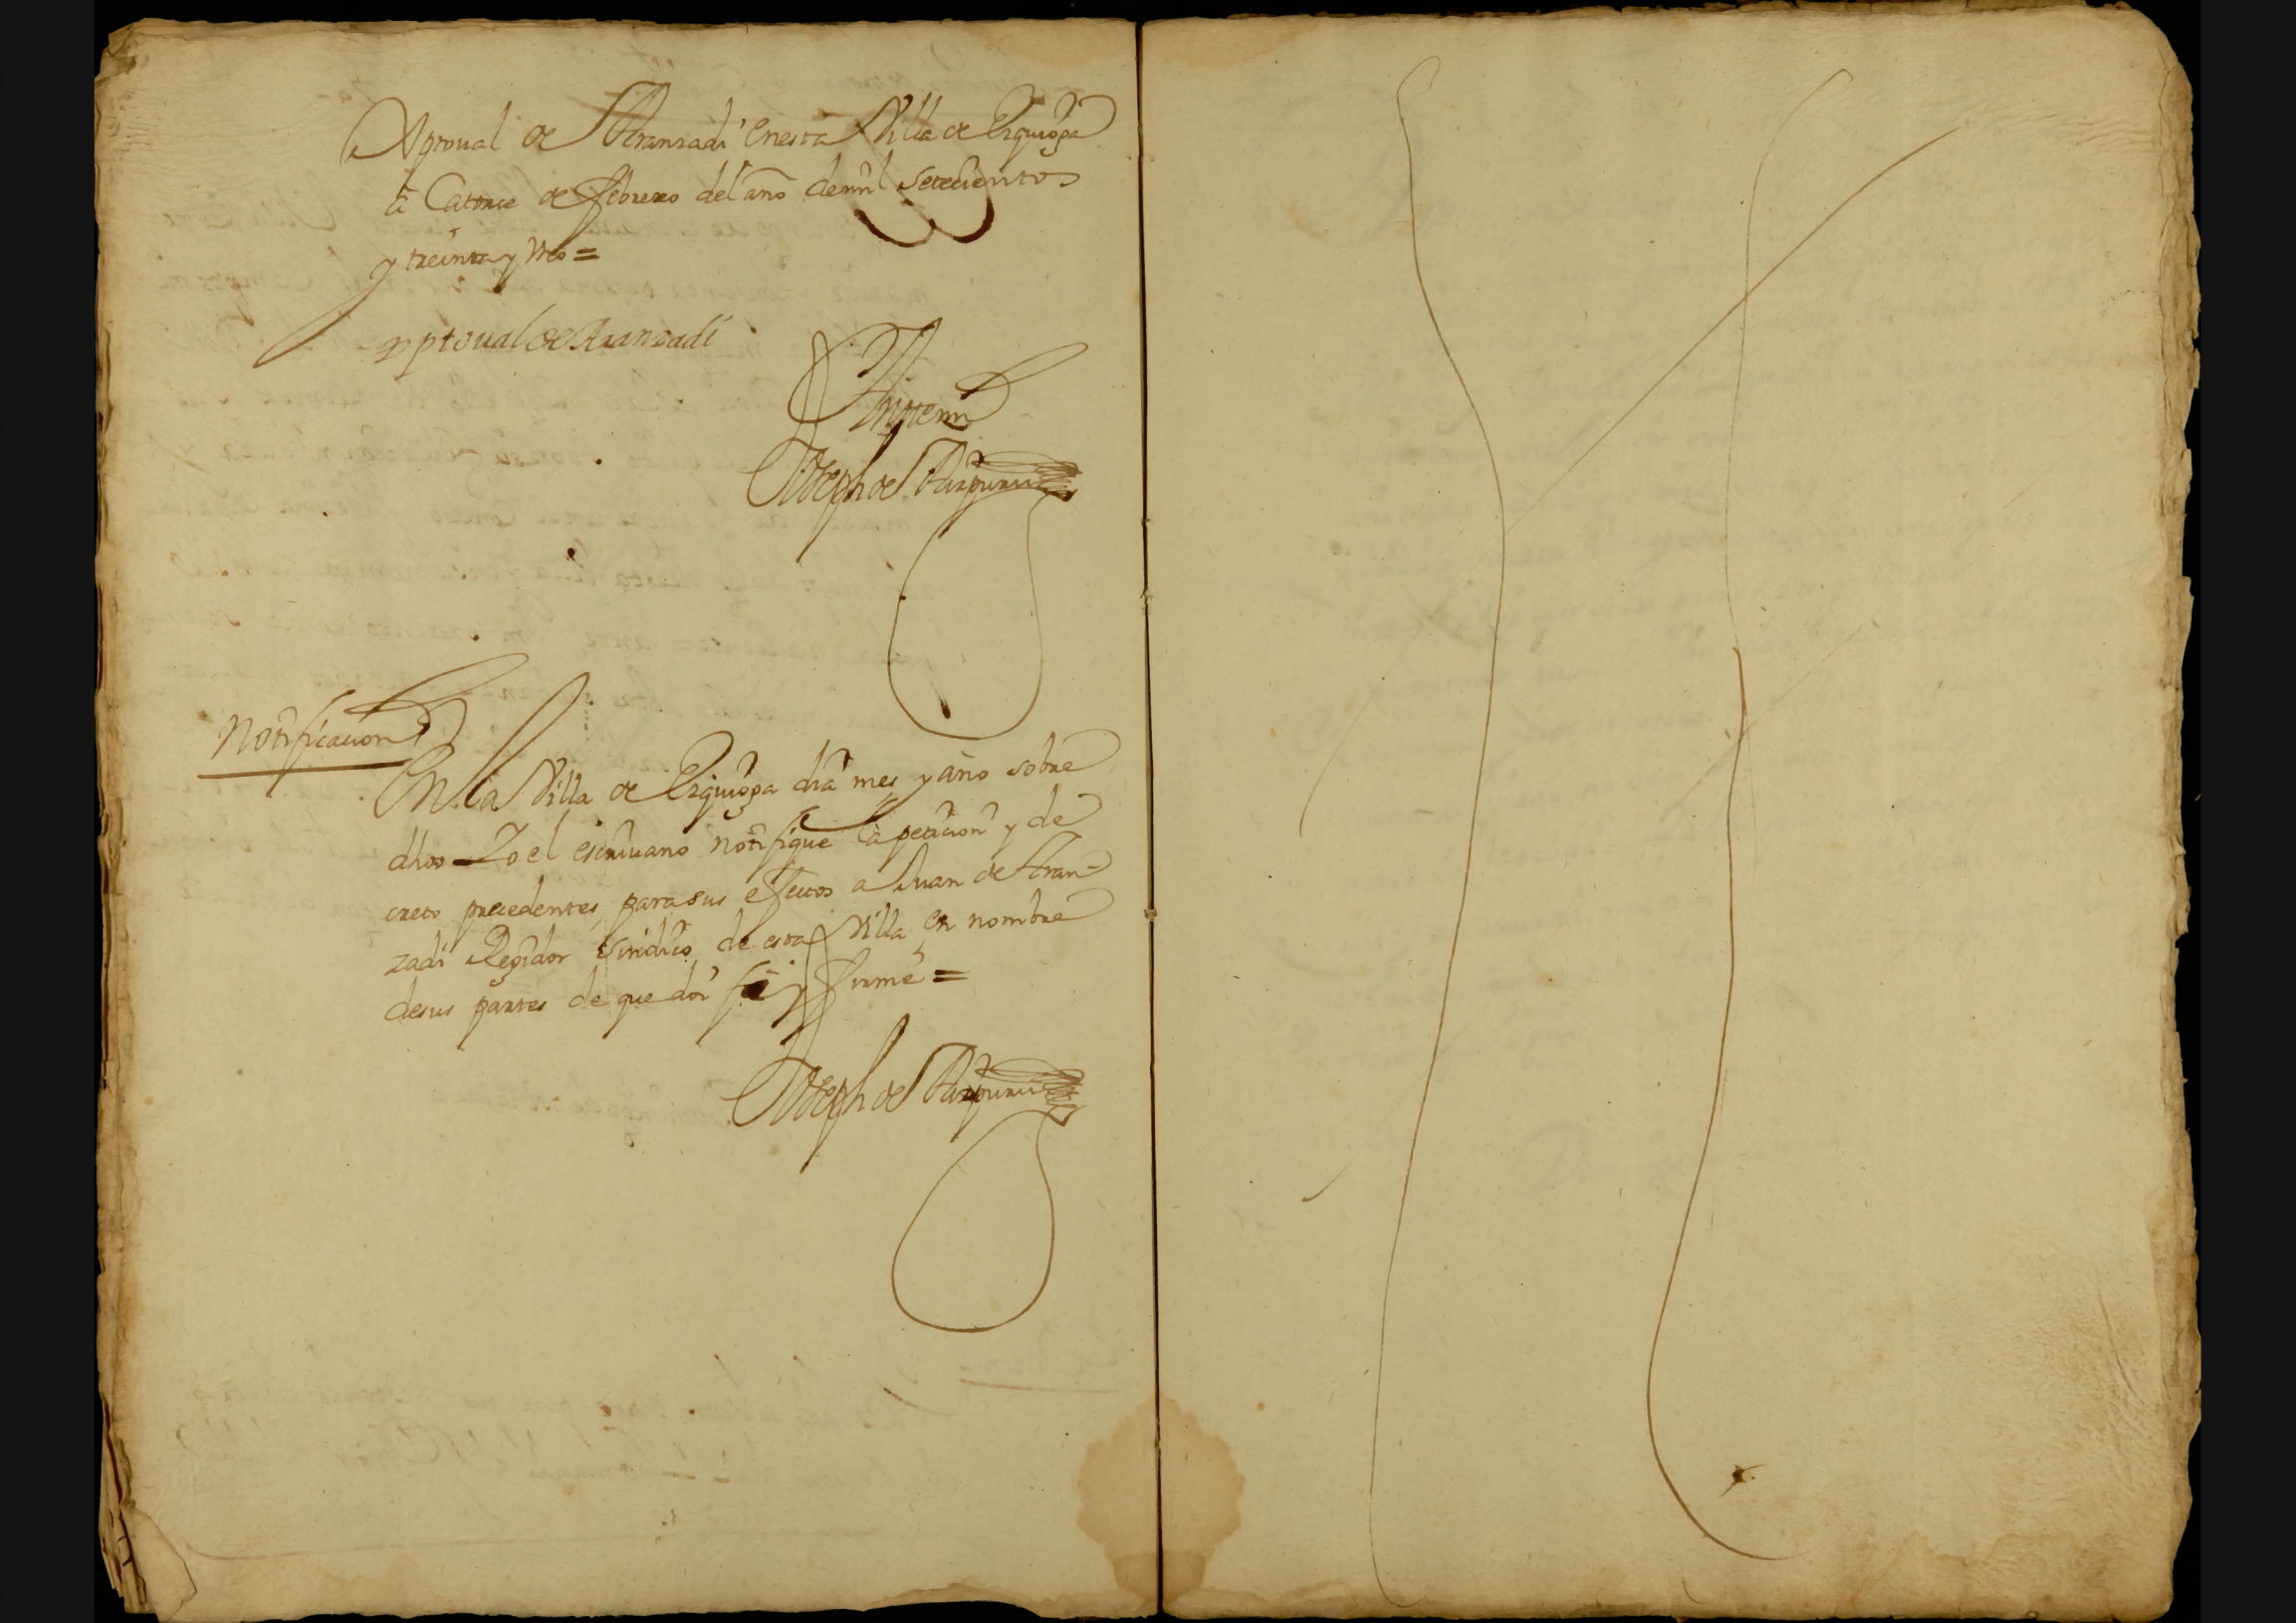 Xptoual de Aranzadi en esta Villa de Ezquioga
à Catorce de Febrero del año de mil setecientos
y treinta y tres =
Xptoual de Aranzadi
Antte mi
Joseph de Aizpuru
Notificacion
En la Villa de Ezquioga dia mes y año sobre
dhos Yo el escriuano notifique la peticion y de
creto precedentes, para sus efectos a Juan de Aran-
zadi Regidor sindico de esta Villa en nombre
de sus partes de que doi fe y firmé =
Joseph de Aizpuru